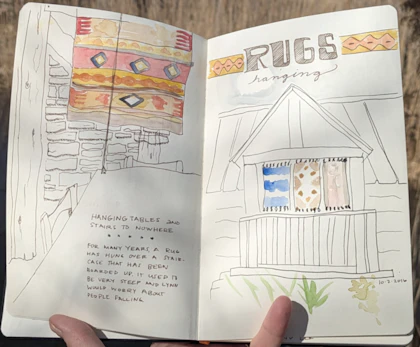 HANGING TABLES AND
STAIRS TO NOWHERE
FOR MANY YEARS A RUG
HAS HUNG OVER A STAIR-
CASE THAT HAS BEEN
BOARDED UP. IT USED TO
BE VERY STEEP AND LYNN
WOULD WORRY ABOUT
PEOPLE FALLING
RUGS
hanging
10.2.2016